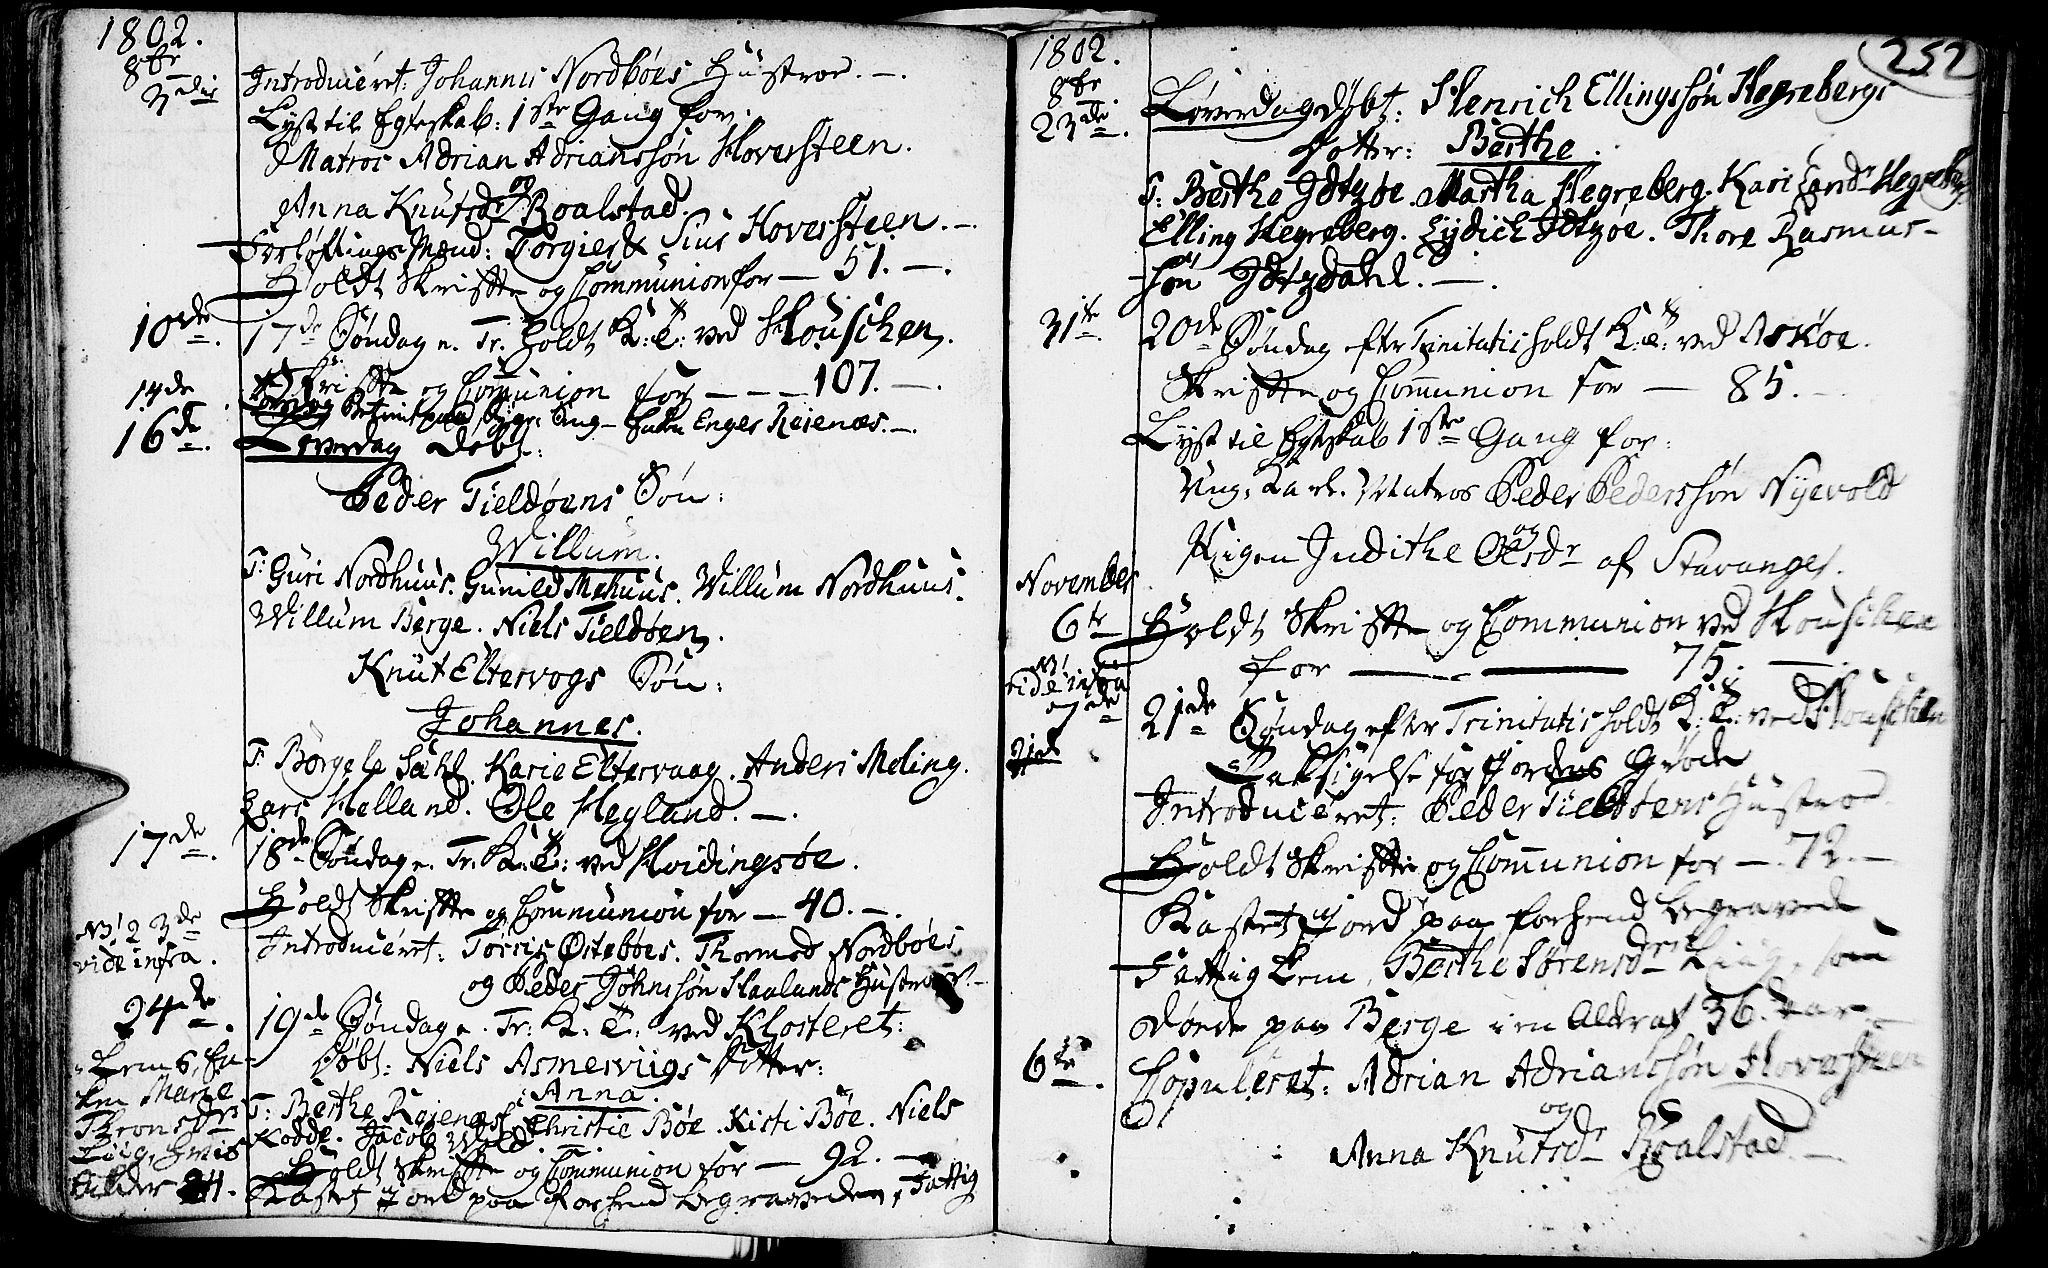 1802.
8br
3die
Introduceret: Johannis Nordbøes Hustroe. —.
Lyst til Egteskab: 1ste Gang for:
Matros Adrian Adrianssøn Hoversteen.
og
Anna Knutsdr Roalstad.
Forløftings Mænd: Torgier & Sius Hoversteen. —.
Holdt Skrifte og Communion for — 51. —.
10de
17de Søndag e. Tr. holdt K: T: ved Houschen.
Skrifte og Communion for — — — 107. —.
14de
Enger Reienæs. —.
16de
Løverdag Døbt:
Peder Tieldøens Søn:
Willum.
F: Guri Nordhuus. Gunild Mehuus. Willum Nordhuus.
Willum Berge. Niels Tieldøen.
Knut Eltervogs Søn:
Johannes.
F. Børgele Sahl. Karie Eltervaag. Anders Meling.
Lars Helland. Ole Hegland. —.
17de
18de Søndag e. Tr. K: T: ved Hvidingsøe.
Holdt Skrifte og Communion for — 40. —.
NB! 23de
vide infra.
Introduceret: Torris Østebøes. Thormod Nordbøes
og Peder Johnssøn Haalands Hustroer. —
24de
19de Søndag e. Tr: K: T: ved Klosteret:
Døbt: Niels Asmerviigs Dotter:
Anna.
Lem
Marie
Thronsdr
Liig,
Alder
F: Berthe Reienæs. Christie Bøe. Kisti Bøe. Niels
Kodde. Jacob Wold
Holdt Skrifte og Communion for — 92. —
Kastet Jord paa forhend begravede, Fattig
1802.
252
8br
23de.
Løverdag døbt: Henrich Ellingssøn Hegrebergs
Dotter: Berthe.
F: Berthe Idtzøe. Martha Hegreberg. Kari Landr Hegreberg
Elling Hegreberg. Lydich Idtzøe. Thore Rasmus-
søn Idtzdahl. —.
31te.
20de Søndag efter Trinitatis holdt K: T: ved Askøe.
Skrifte og Communion for — 85. —
Lyst til Egteskab 1ste Gang for:
Ung Karl. Matros Peder Pederssøn Nyevold
og
Pigen Judithe Olesdr af Stavanger.
November
6te
Holdt Skrifte og Communion ved Houschen
for — — 75. —.
NB!
vide infra
7de
21de Søndag efter Trinitatis holdt K: T: ved Houschen
Taksigelse for Jordens Grøde
21de
Introduceret: Peder Tieldøens Hustroe
Holdt Skrifte og Communion for — 72. —
Kastet Jord paa forhend begravede
Fattig Lem, Berthe Sørensdrs Liig, som
Døde paa Berge i en Alder af 36. Aar
6te.
Copuleret: Adrian Adrianssøn Hoversteen
og
Anna Knutsdr Roalstad. —